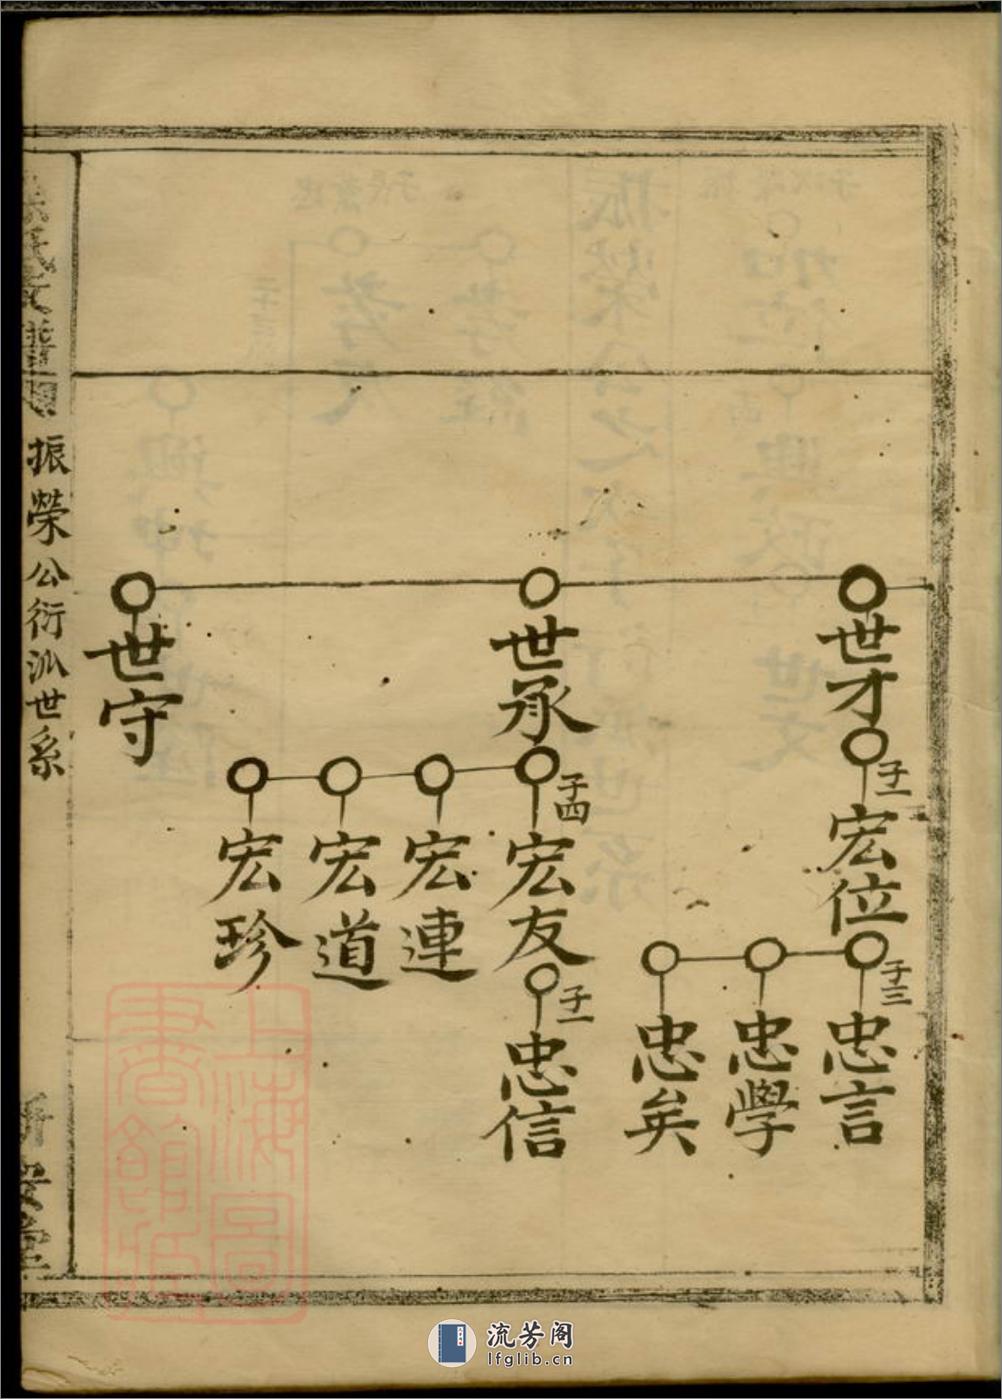 世才
子一
宏位
子三
忠言
忠學
忠矣
世承
子四
宏友
子一
忠信
宏連
宏道
宏珍
世守
振榮公衍派世系
上海圖
書館藏
流芳阁
lfglib.cn